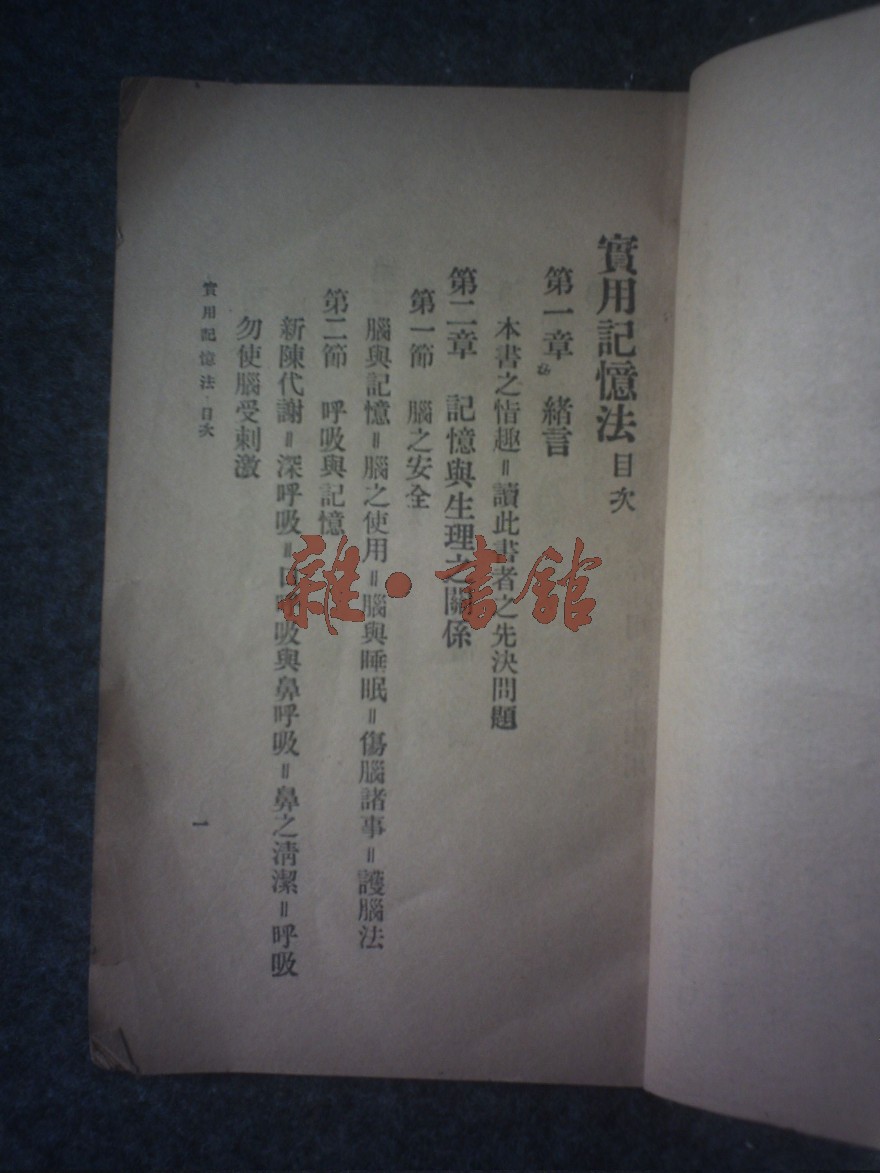 實用記憶法目次
第一章 緒言
本書之情趣＝讀此書者之先決問題
第二章 記憶與生理之關係
第一節 腦之安全
腦與記憶＝腦之使用＝腦與睡眠＝傷腦諸事＝護腦法
第二節 呼吸與記憶
新陳代謝＝深呼吸＝口呼吸與鼻呼吸＝鼻之清潔＝呼吸
勿使腦受刺激
實用記憶法·目次
一
雜·書館